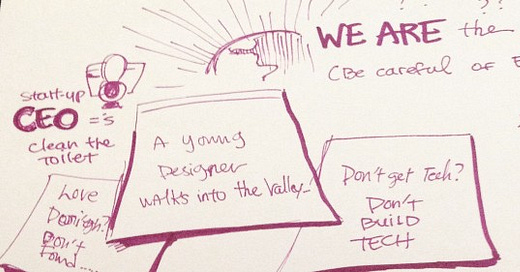 WE ARE the
(Be careful of E
start-up
CEO ='s
clean the
toilet
A young
Designer
walks into the Valley...
Don't get Tech?
Don't
BUILD
TECH
Love
Design?
Don't
found....